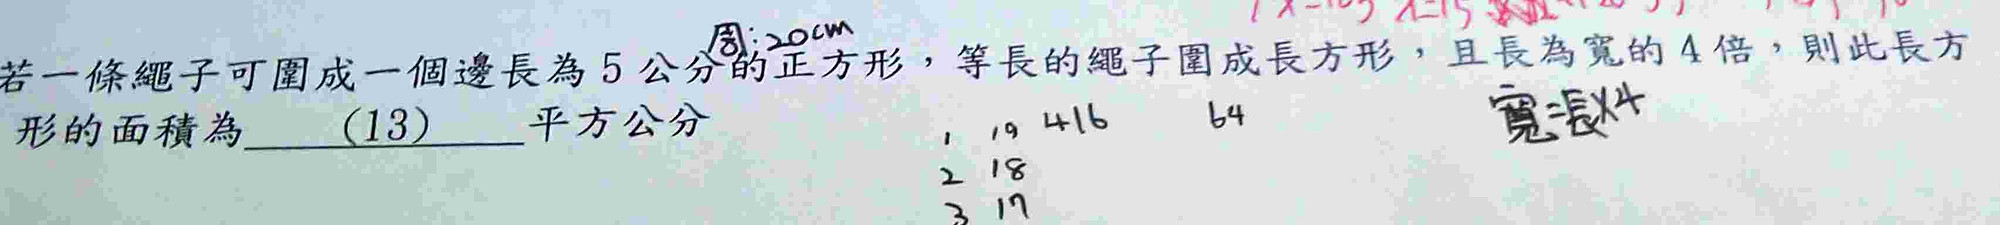 周:20cm
若一條繩子可圍成一個邊長為5公分的正方形,等長的繩子圍成長方形,且長為寬的4倍,則此長方
形的面積為 (13) 平方公分
1 19 416 64 寬=長×4
2 18
3 17